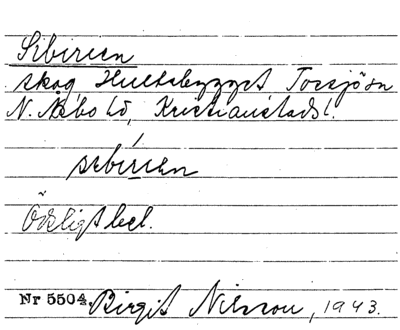 Sibirien
skog Hultabygget Torsjösn
N. Åsbo hd, Kristianstads l.
sibírien
Ödsligt bel.
Nr 5504. Birgit Nilsson, 1943.